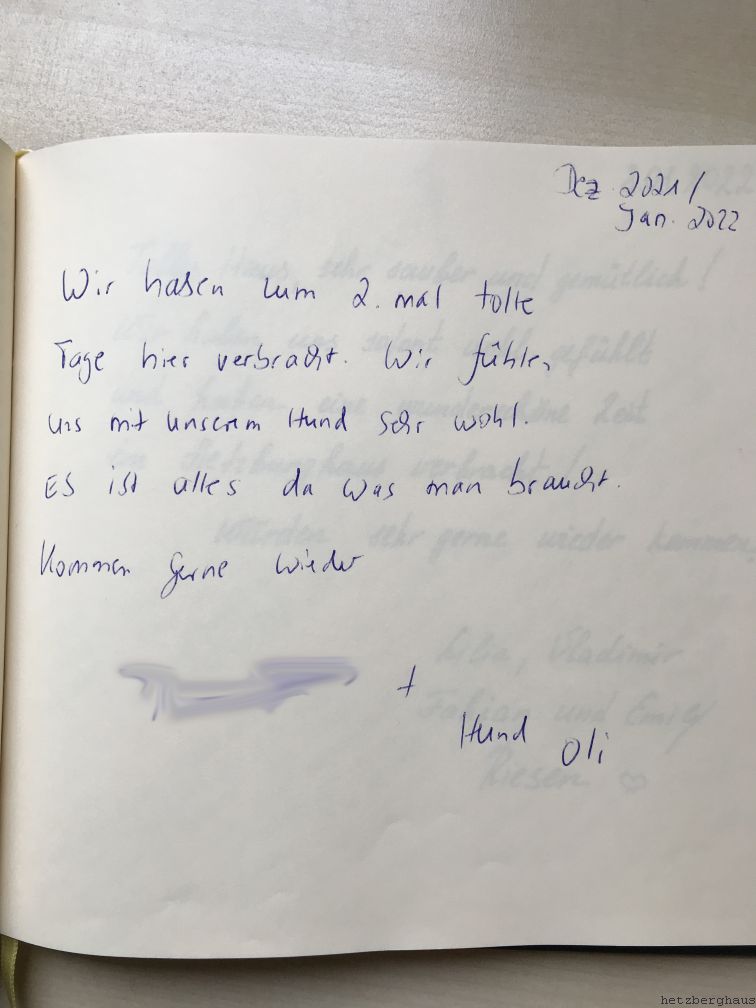 Dez. 2021 /
Jan. 2022
Wir haben zum 2. mal tolle
Tage hier verbracht. Wir fühlen
uns mit unserem Hund sehr wohl.
ES ist alles da was man braucht.
Kommen gerne wieder
+
Hund Oli
hetzberghaus